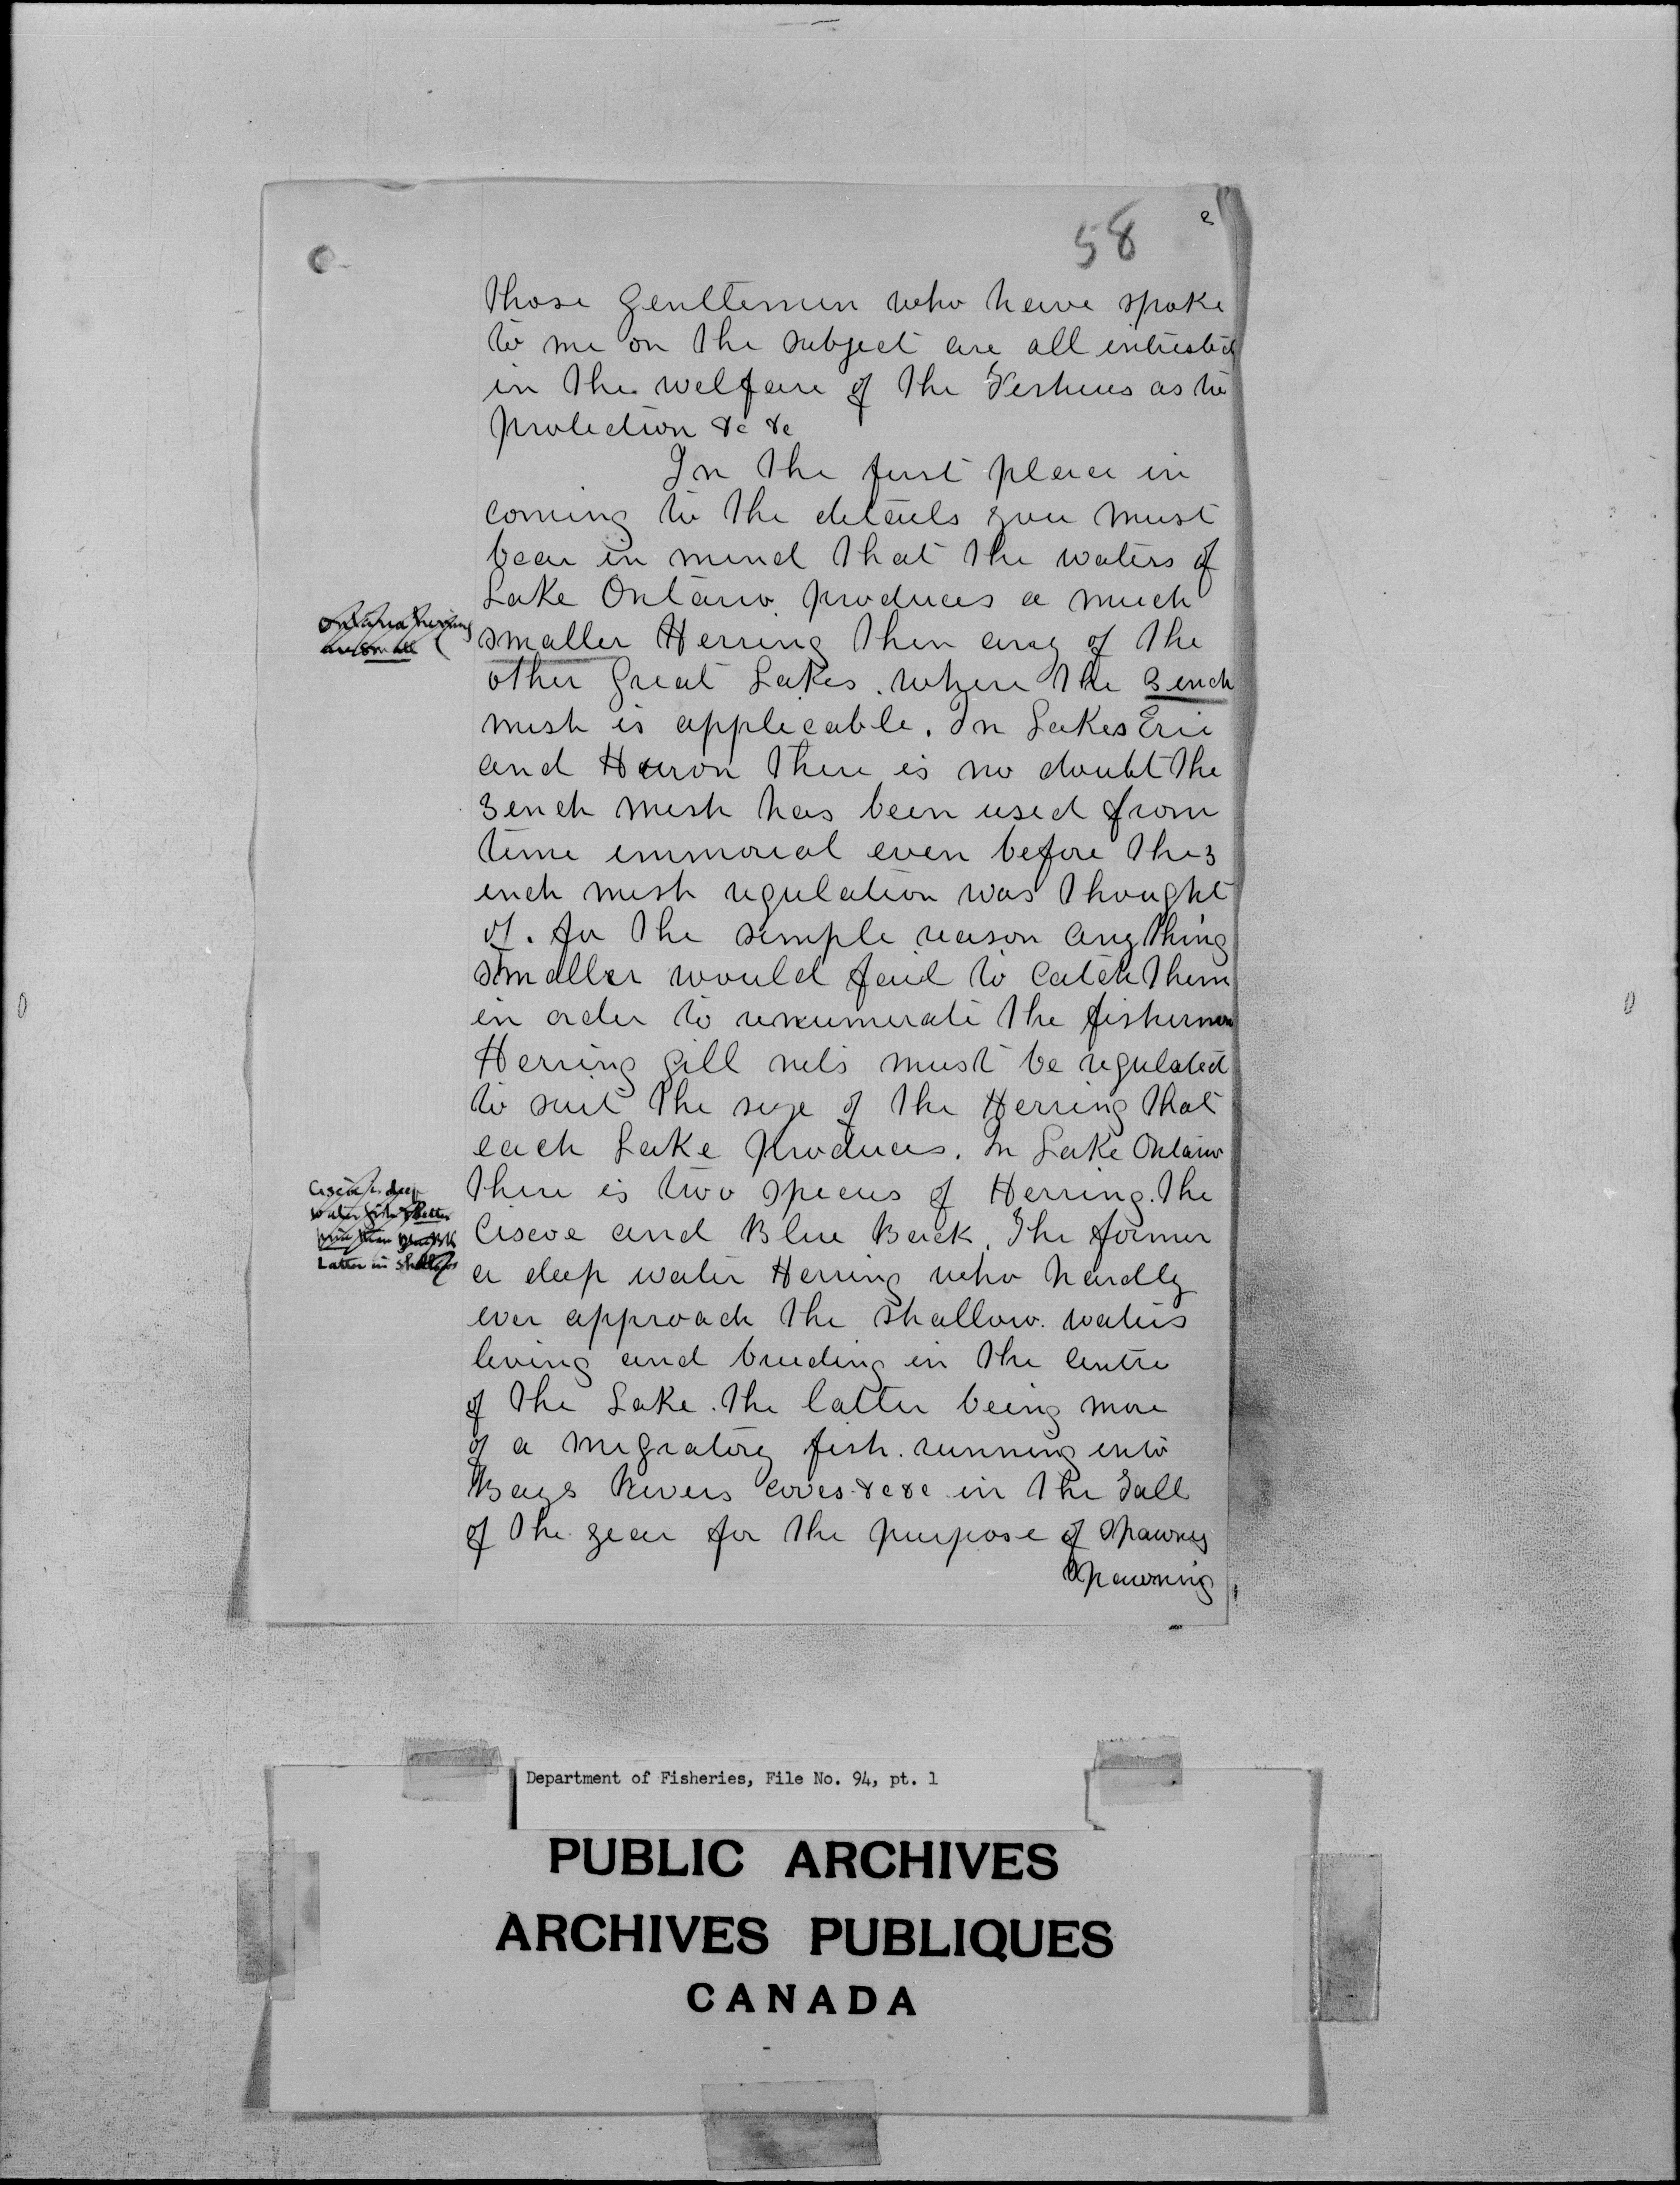 58
those Gentlemen who have spoke
to me on the subject are all intrested
in the welfare of the Fisheries as to
protection &c &c
In the first place in
coming to the details you must
bear in mind that the waters of
Lake Ontario produces a much
Ontario Herring
are small
smaller Herring then any of the
other Great Lakes. where the 3 inch
mesh is applicable. In Lakes Erie
and Huron there is no doubt the
3 inch mesh has been used from
time immorial even before the 3
inch mesh regulation was thought
of. for the simple reason any thing
smaller would fail to catch them
in order to renumerate the fishermen
Herring gill nets must be regulated
to suit the size of the Herring that
each Lake produces. In Lake Ontario
there is two species of Herring. the
Ciscoe and Blue Back. The former
a deep water Herring who hardly
Latter in
ever approach the shallow. waters
living and breeding in the Centre
of the Lake. the latter being more
of a migratory fish. running into
Bays Rivers coves &c &c in the Fall
of the year for the purpose of spawning
Spawning
Department of Fisheries, File No. 94, pt. 1
PUBLIC ARCHIVES
ARCHIVES PUBLIQUES
CANADA